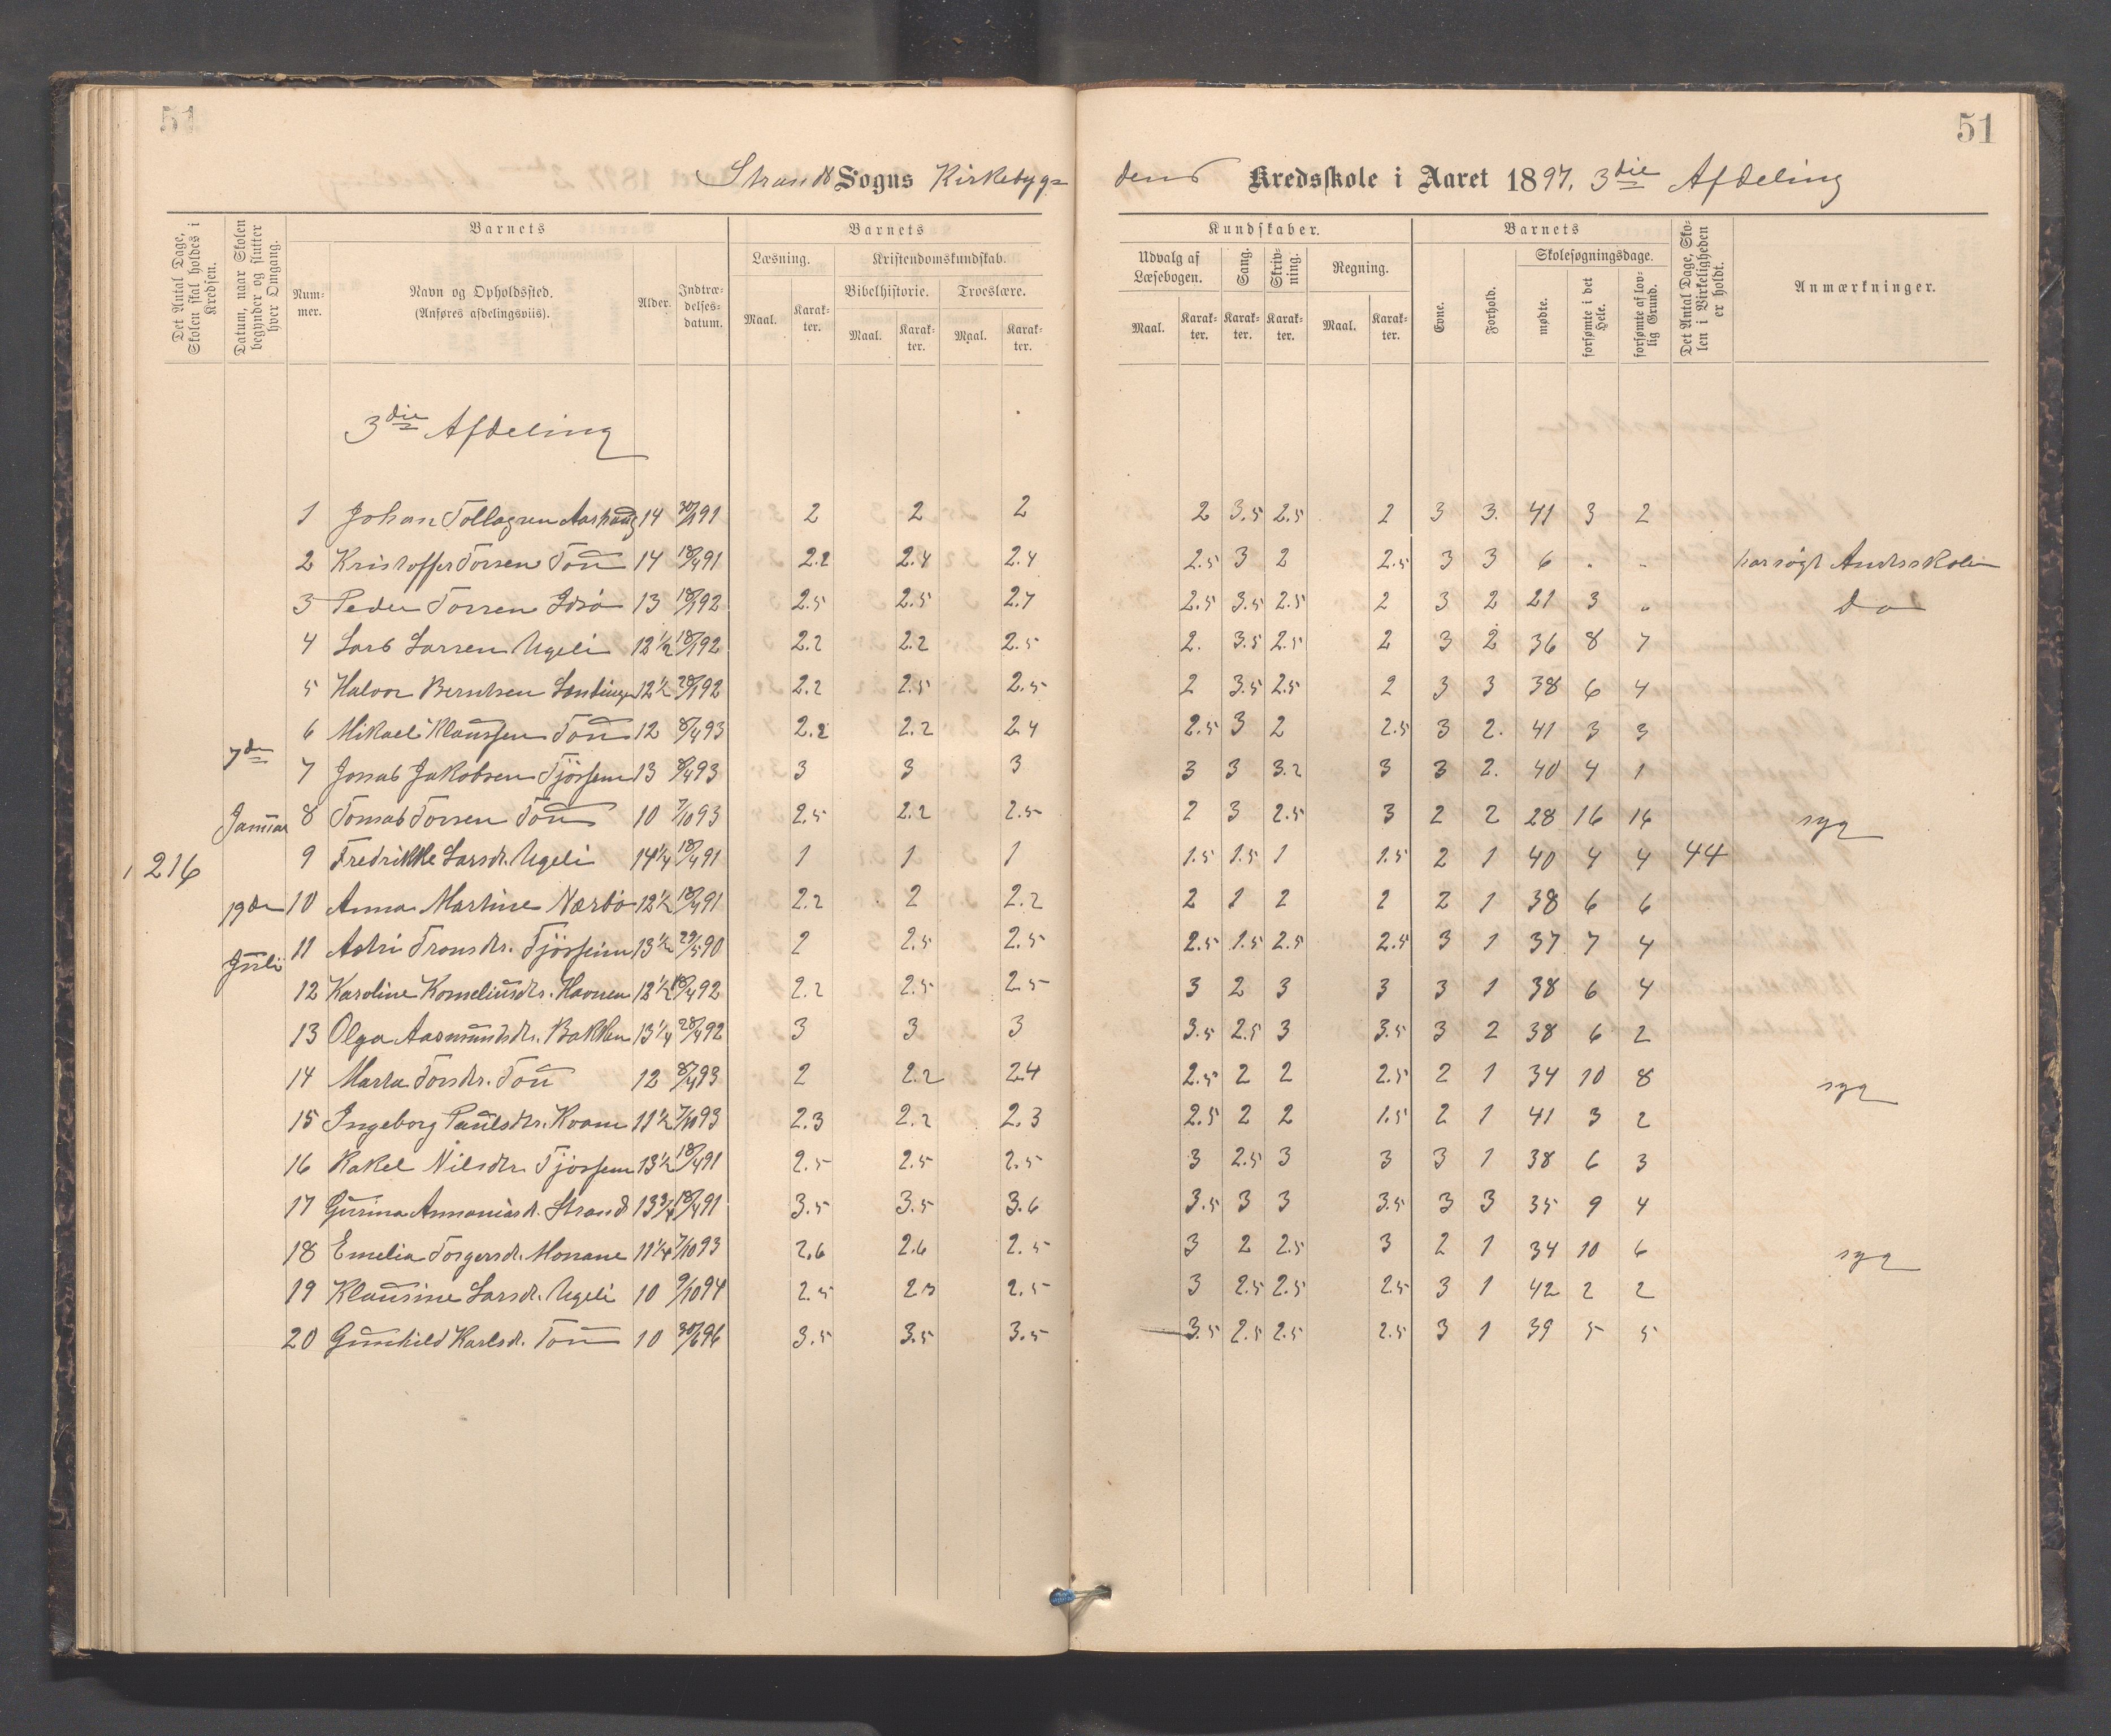 51
51
Strands Sogns Kirkebyg=
dens Kredsskole i Aaret 1897. 3die Afdeling
Det Antal Dage, Skolen skal holdes i Kredsen.
Datum, naar Skolen begynder og slutter hver Omgang.
Barnets
Num-mer.
Navn og Opholdssted.
(Anføres afdelingsviis).
Alder.
Indtræ-delses-datum.
Barnets
Læsning.
Maal. Karak-ter.
Kristendomskundskab.
Bibelhistorie. Troeslære.
Maal. Karak-ter. Maal. Karak-ter.
Kundskaber.
Udvalg af Læsebogen.
Maal. Karak-ter.
Sang. Karak-ter.
Skriv-ning. Karak-ter.
Regning.
Maal. Karak-ter.
Barnets
Evne.
Forhold.
Skolesøgningsdage.
mødte.
forsømte i det Hele.
forsømte af lov-lig Grund.
Det Antal Dage, Sko-len i Virkeligheden er holdt.
Anmærkninger.
3die Afdeling
1 Johan 14 91 2 2 2 2 3.5 2.5 2 3 3. 41 3 2
2 Kristoffer Torsen Tou 14 18/4 91 2.2 2.4 2.4 2.5 3 2 2.5 3 3 6 . . har søgt
3 Peder Torsen Idsø 13 92 2.5 2.5 2.7 2.5 3.5 2.5 2 3 2 21 3 . Do
4 Lars Larsen Ugeli 12½ 92 2.2 2.2 2.5 2. 3.5 2.5 2 3 2 36 8 7
5 Halvor Berntsen 12½ 92 2.2 2.5 2.5 2 3.5 2.5 2 3 3 38 6 4
6 Mikael Klaussen Tou 12 8/4 93 2.2 2.2 2.4 2.5 3 2 2.5 3 2. 41 3 3
7de
7 Jonas Jakobsen Tjøssem 13 8/4 93 3 3 3 3 3 3.2 3 3 2. 40 4 1
Januar
8 Tomas Torsen Tou 10 7/10 93 2.5 2.2 2.5 2 3 2.5 3 2 2 28 16 14 syg
216
9 Fredrikke Larsdr. Ugeli 14¼ 18/4 91 1 1 1 1.5 1.5 1 1.5 2 1 40 4 4 44
19de
10 Anna Martine Nærbø 12½ 18/4 91 2.2 2 2.2 2 1 2 2 2 1 38 6 6
Juli
11 Astri Tronsdr. Tjøssem 13½ 29/5 90 2 2.5 2.5 2.5 1.5 2.5 2.5 3 1 37 7 4
12 Karoline Korneliusdtr. Havnen 12½ 18/4 92 2.2 2.5 2.5 3 2 3 3 3 1 38 6 4
13 Olga Aasmundsdtr. Bakken 13¼ 28/4 92 3 3 3 3.5 2.5 3 3.5 3 2 38 6 2
14 Marta Torsdr. Tou 12 8/4 93 2 2.2 2.4 2.5 2 2 2.5 2 1 34 10 8 syg
15 Ingeborg Paulsdtr. Kvam 11½ 7/10 93 2.3 2.2 2.3 2.5 2 2 1.5 2 1 41 3 2
16 Rakel Nilsdtr. Tjøssem 13½ 18/4 91 2.5 2.5 2.5 3 2.5 3 3 3 1 38 6 3
17 Gurina Annaniasd. Strand 13¾ 18/4 91 3.5 3.5 3.6 3.5 3 3 3.5 3 3 35 9 4
18 Emelia Torgersd. Monane 11¼ 7/10 93 2.6 2.6 2.5 3 2 2.5 3 2 1 34 10 6 syg
19 Klausine Larsdr. Ugeli 10 9/10 94 2.5 2.5 3 2.5 2.5 2.5 3 1 42 2 2
20 Gunhild Karlsd. Tou 10 30/6 96 3.5 3.5 3.5 3.5 2.5 2.5 2.5 3 1 39 5 5